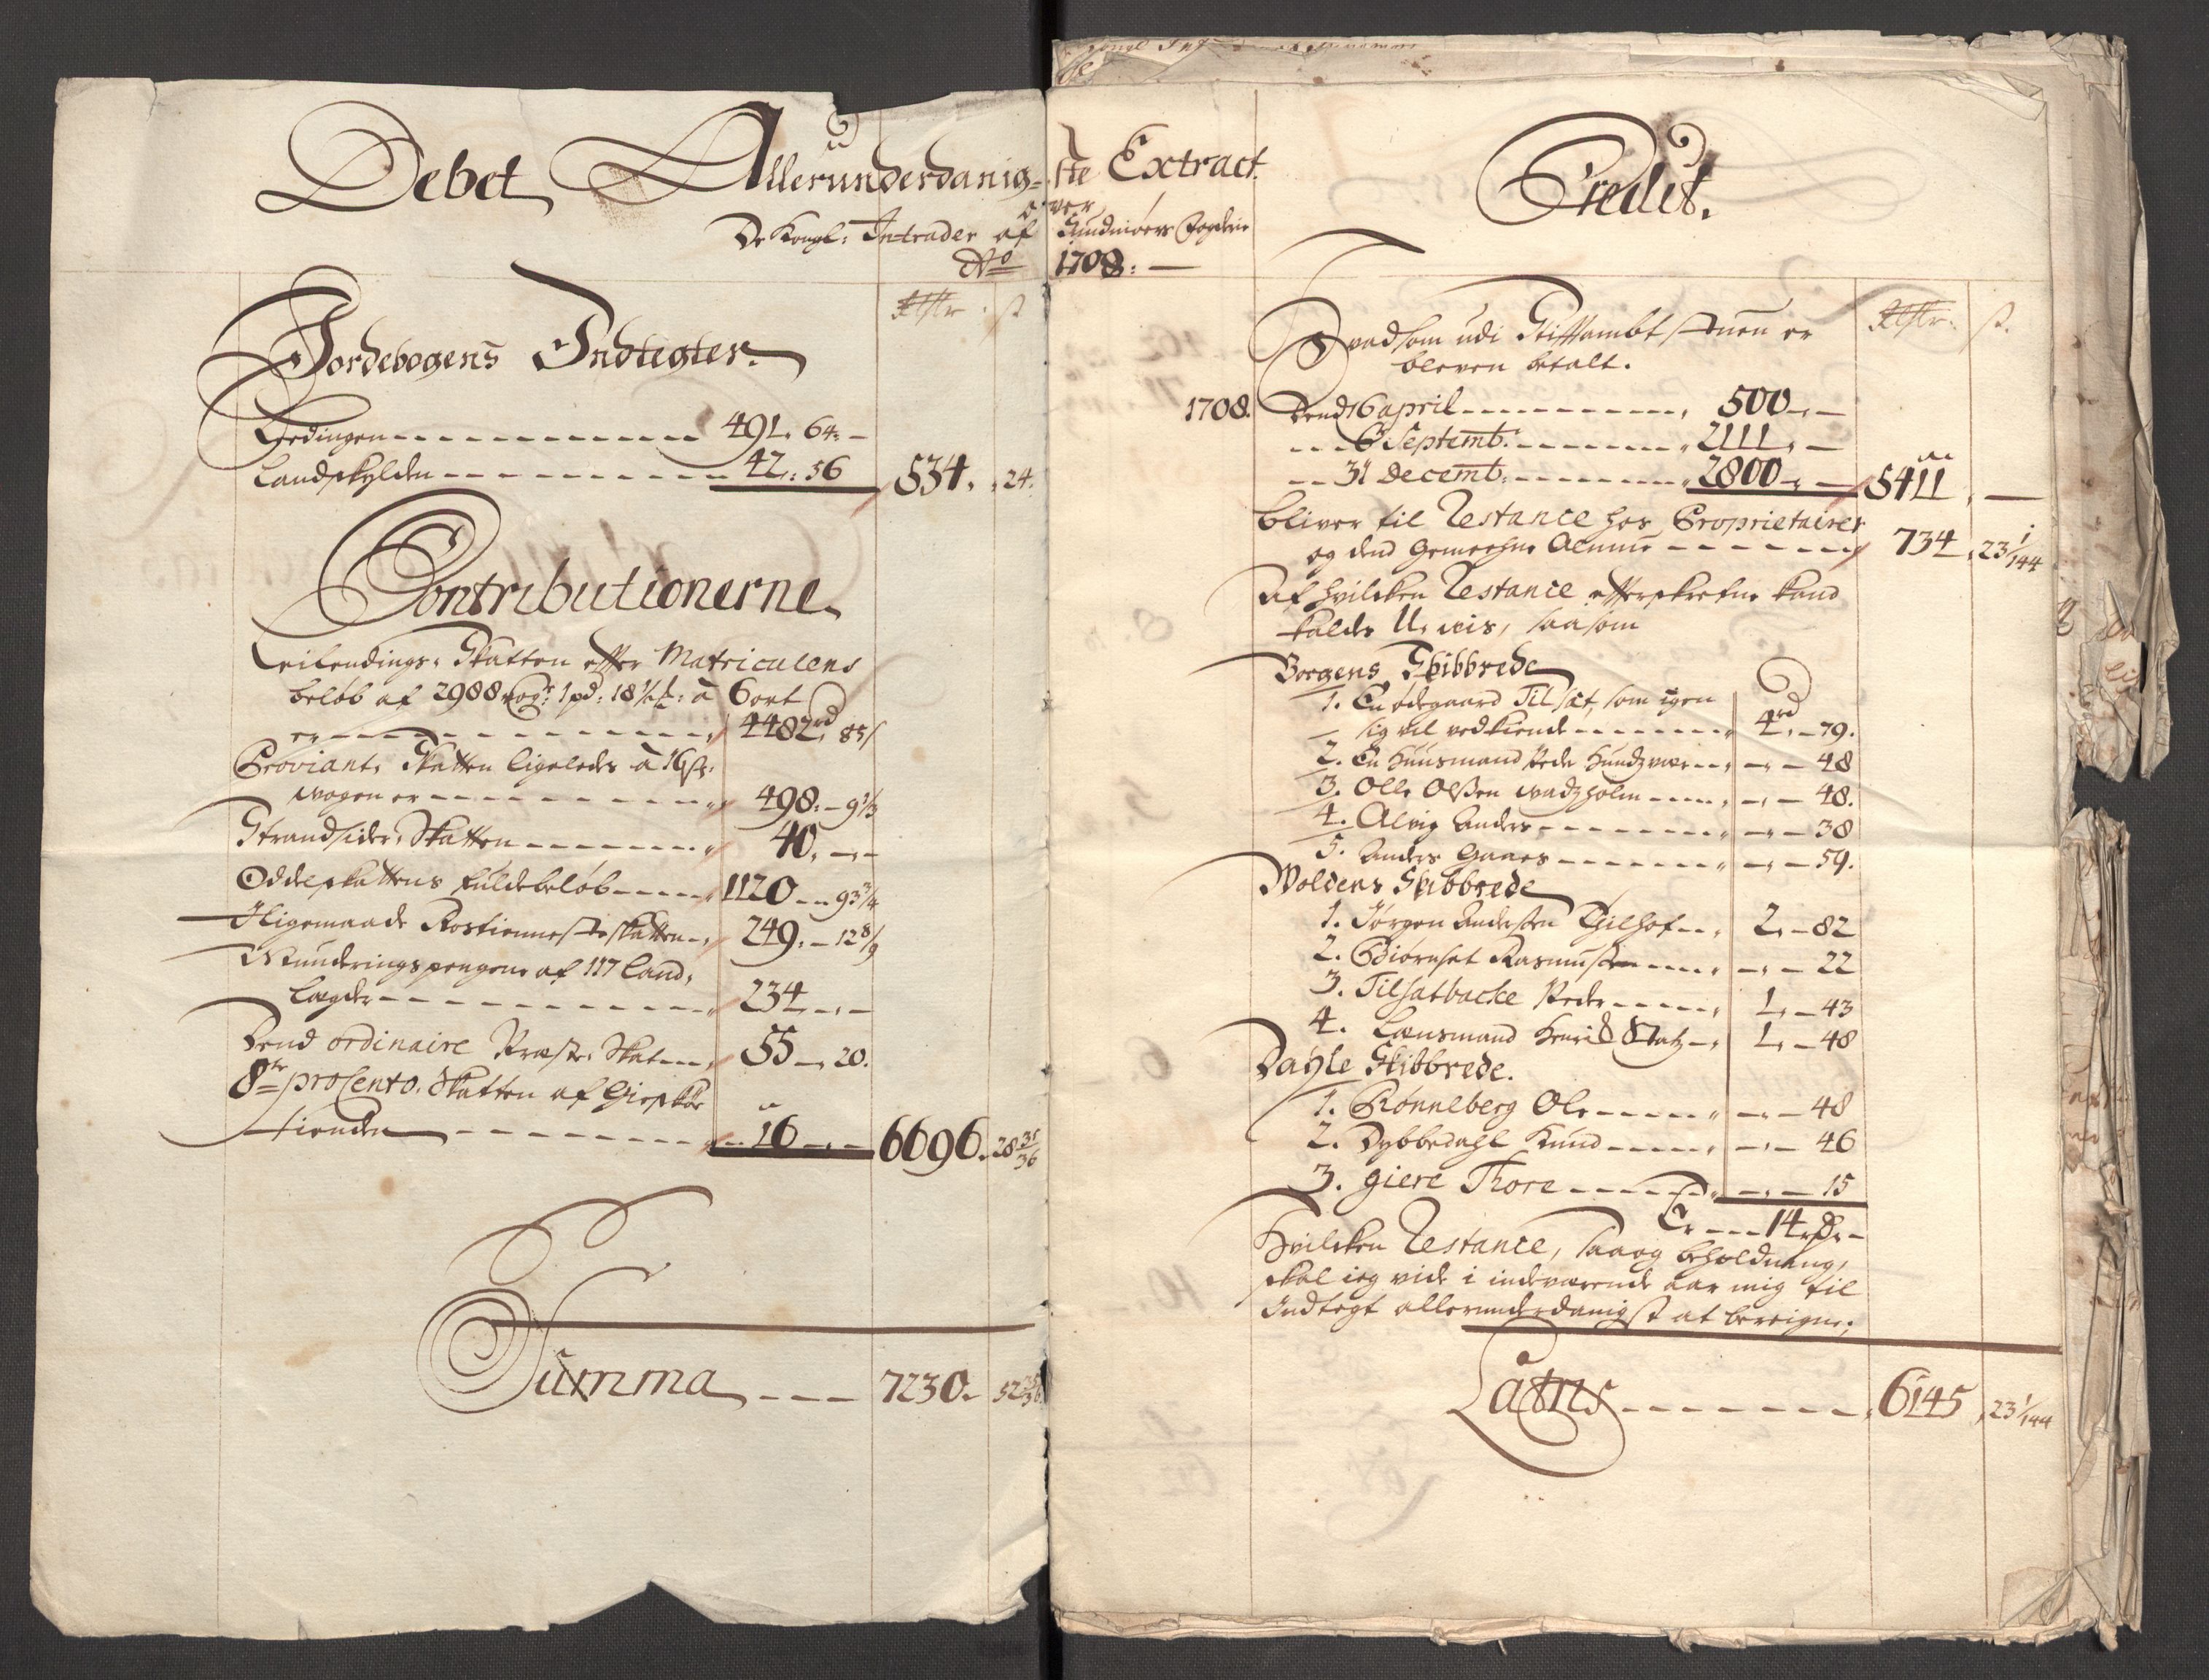 Debet Allerunderdanig-
ste Extract
over
De Kongl: Intrader af Sundmørs Fogderie
Ao 1708: —
Rdlr ß
Jordebogens Indtegter.
Ledingen - - - 491. 64. -
Landskylden - - - 42.: 56 534. 24.
Contributionerne
Leilendings Skatten efter Matriculens
beløb af 2988 1 pd: 18 à 6 ort
er - - - 4482 rd 85
Proviant Skatten ligeledes à 16 ß
wogen er - - - 498. - 9 1/3
Strandsider Skatten - - - 40. - -
Oddelskattens fulde beløb - - - 1120 - - 93 3/4
Iligemaade Rostienneste skatten - - 249. - 12 8/9
Munderings pengene af 117 Land,
Lægder - - - 234 - . -
Dend ordinaire Præste Skat - - 55 - . 20.
8te pro Cento Skatten af
tienden - - - 16 - . - 6696. 28 35/36
Summa - - - 7230. 52 35/36
Credit.
Rdlr. ß.
Hvad som udi Stiftambt stuen er
bleven betalt.
1708. Dend 16 april - - - 500 - . -
- - - 6 Septemb: - - - 2111 . -
- - 31 Decemb: - - - 2800 - . - 5411 . —
bliver til Restance hos Proprietairer
og dend gemeehne Almue - - - 734 . 23 1/144
Af hvilcken Restance efterskrefne kand
kaldes U, vis, saasom
Borgens Skibbrede
1. En ødegaard Tilsæt, som igen
sig vil vedkiende - - - 4 rd . - 79.
2. En Huusmand Peder - - - . - 48
3. Olle Olßen wadzholm - - - . - 48.
4. Alvig Anders - - - . - 38
5. Anders Gaaes - - - . - 59.
Woldens Skibbrede
1. Jørgen Anderßen - - 2. - 82
2. Rasmusßen - - - . - 22
3. Tilsatbacke Peder - - - 1. - 43
4. Lænsmand Henrich - - 1. - 48
Dahle Skibbrede.
1. Rønneberg Ole - - - . - 48
2. Dybbedahl Knud - - - . - 46
3. giere Thore - - - . - 15
Er - - - 14 rdr -
Hvilcken Restance, saa og beholdning,
skal ieg vide i indeværende aar mig til
Indtegt allerunderdanigst at bereigne;
Latus - - - 6145 . 23 1/144